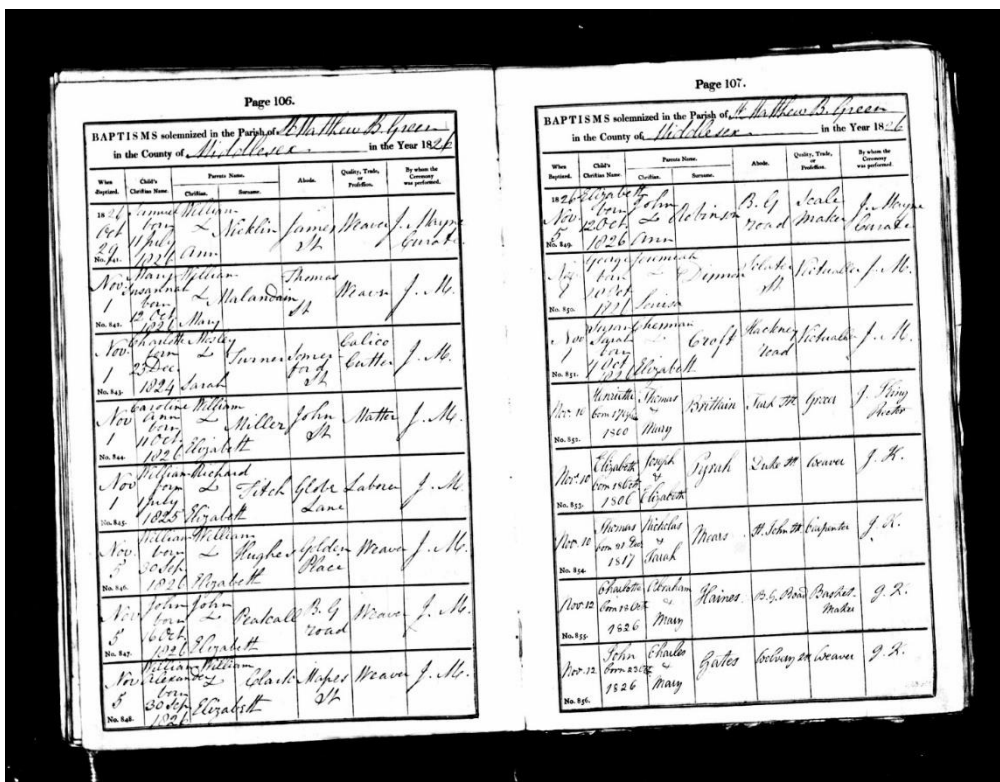 Page 106.
BAPTISMS solemnized in the Parish of St Matthew B. Green
in the County of Middlesex in the Year 1826
When Baptized. Child's Christian Name. Parents Name. Christian. Surname. Abode. Quality, Trade, or Profession. By whom the Ceremony was performed.
1826 Oct 29 No. 841. Samuel born 11 July 1826 William & Ann Nicklin James St Weaver J. Mayne Curate
Nov. 1 No. 842. Mary Susannah born 12 Oct 1826 William & Mary Malandain Thomas St Weaver J. M.
Nov. 1 No. 843. Charlotte born 23 Dec 1824 Mosley & Sarah Turner Somerford St Calico Cutter J. M.
Nov 1 No. 844. Caroline Ann born 11 Oct 1826 William & Elizabeth Miller John St J. M.
Nov 1 No. 845. William born 1 July 1825 Richard & Elizabeth Fitch Globe Lane Laborer J. M
Nov. 5 No. 846. William born 30 Sep 1826 William & Elizabeth Hughes Golden Place Weaver J. M.
Nov 5 No. 847. John born 6 Oct. 1826 John & Elizabeth B. G road Weaver J. M.
Nov 5 No. 848. William Alexander born 30 Sep 1826 William & Elizabeth Clark Mapes St Weaver J. M.
Page 107.
BAPTISMS solemnized in the Parish of St Matthew B. Green
in the County of Middlesex in the Year 1826
When Baptized. Child's Christian Name. Parents Name. Christian. Surname. Abode. Quality, Trade, or Profession. By whom the Ceremony was performed.
1826 Nov. 5 No. 849. Elizabeth born 12 Oct 1826 John & Ann Robinson B. G road Scale Maker J. Mayne Curate
Nov No. 850. George born Oct Jeremiah & Louisa St Victualler J. M.
Nov 1 No. 851. Sarah born Oct 1826 & Elizabeth Croft Hackney road Victualler J. M.
Nov. 10 No. 852. born 1800 Thomas & Mary Brittain Grocer J. King Rector
Nov. 10 No. 853. Elizabeth born 18 Oct 1806 Joseph & Elizabeth Pyrah Duke St Weaver J. K.
Nov. 10 No. 854. Thomas born 21 Dec 1817 Nicholas & Sarah Mears St. John St Carpenter J. K.
Nov. 12 No. 855. Charlotte born 18 Oct 1826 Abraham & Mary Haines B. G. Road Basket Maker J. K.
Nov. 12 No. 856. John born 23 Oct 1826 Charles & Mary Gates St Weaver J. K.